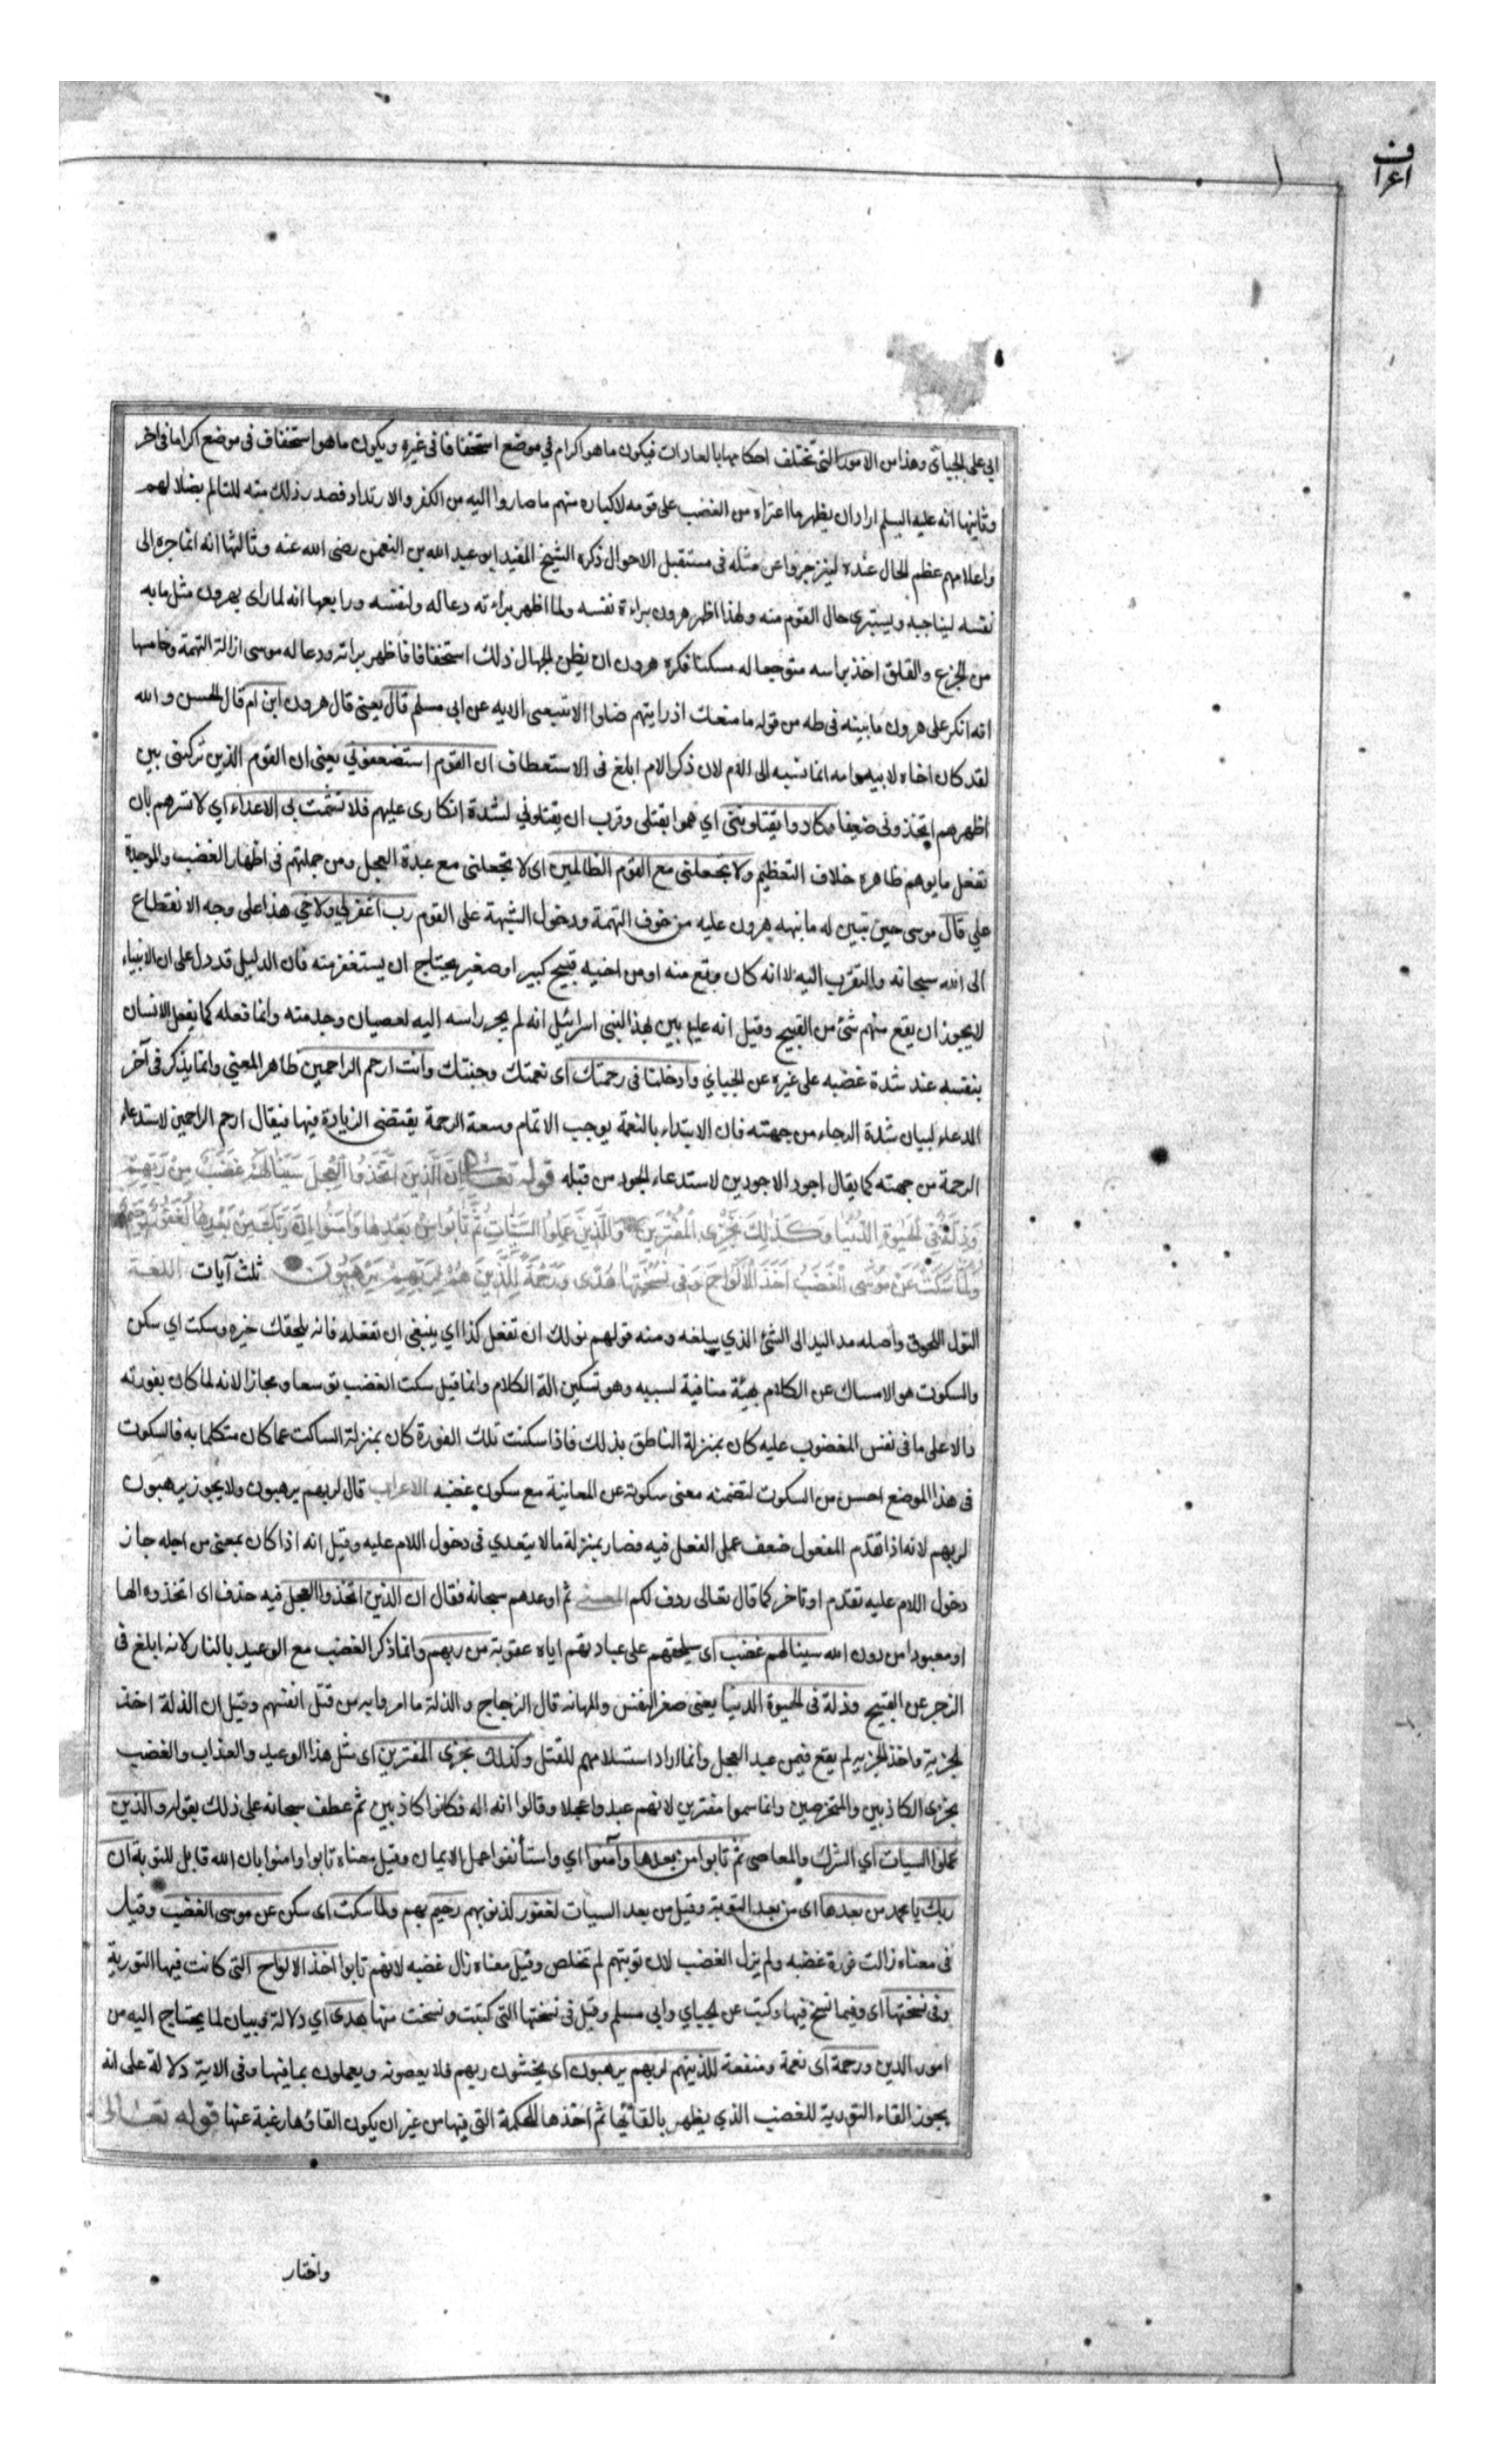 اعراف
ابي على الجبائي وهذا من الامور التي تختلف احكامها بالعادات فيكون ما هو اكرام في موضع استخفافا في غيره ويكون ما هو استخفاف في موضع اكراما في اخر
وثانيها انه عليه السلم اراد ان يظهر ما اعتراه من الغضب على قومه لاكباره منهم ما صاروا اليه من الكفر والارتداد فصدر ذلك منه للتالم بضلالهم
واعلامهم عظم الحال عنده لينزجروا عن مثله في مستقبل الاحوال ذكره الشيخ المفيد ابو عبد الله بن النعمن رضى الله عنه وثالثها انه انما جره الى
نفسه ليناجيه ويستبرى حال القوم منه ولهذا اظهر هرون براءة نفسه ولما اظهر براءته دعا له ولنفسه ورابعها انه لما راى بهرون مثل ما به
من الجزع والقلق اخذ براسه متوجعا له مسكنا فكره هرون ان يظن الجهال ذلك استخفافا فاظهر براته ودعا له موسى ازالة التهمة وخامسها
انه انكر على هرون ما بينه في طه من قوله ما منعك اذ رايتهم ضلوا الا تتبعنى الايه عن ابي مسلم قال يعنى قال هرون ابن ام قال الحسن والله
لقد كان اخاه لابيه وامه انما نسبه الى الام لان ذكر الام ابلغ في الاستعطاف ان القوم استضعفوني يعنى ان القوم الذين تركتنى بين
اظهرهم اتخذونى ضعيفا وكادوا يقتلوننى اي هموا بقتلى وقرب ان يقتلوني لشدة انكارى عليهم فلا تشمت بى الاعداء اي لا تسرهم بان
تفعل ما يوهم ظاهره خلاف التعظيم ولا تجعلنى مع القوم الظالمين اى لا تجعلنى مع عبدة العجل ومن جملتهم في اظهار الغضب والموجدة
علي قال موسى حين تبين له ما نبهه هرون عليه من خوف التهمة ودخول الشبهة على القوم رب اغفر لي ولاخي هذا على وجه الانقطاع
الى الله سبحانه والتقرب اليه لا انه كان وقع منه او من اخيه قبيح كبير او صغير يحتاج ان يستغفر منه فان الدليل قد دل على ان الانبياء
لا يجوز ان يقع منهم شئ من القبيح وقيل انه عليه بين بهذا لبنى اسرائيل انه لم يجر راسه اليه لعصيان وجد منه وانما فعله كما يفعل الانسان
بنفسه عند شدة غضبه على غيره عن الجبائي وادخلنا فى رحمتك اى نعمتك وجنتك وانت ارحم الراحمين ظاهر المعنى وانما يذكر في آخر
الدعاء لبيان شدة الرجاء من جهته فان الابتداء بالنعمة يوجب الاتمام وسعة الرحمة يقتضى الزيادة فيها فيقال ارحم الراحمين لاستدعاء
الرحمة من جهته كما يقال اجود الاجودين لاستدعاء الجود من قبله قوله تعالى اِنَّ الَّذينَ اتَّخَذُوا الْعِجلَ سَيَنالُهُمْ غَضَبٌ مِنْ رَبِّهِمْ
وَذِلَّةٌ فِي الْحَيٰوةِ الدُّنْيا وَكَذٰلِكَ نَجْزِى الْمُفْتَرينَ وَالَّذينَ عَمِلُوا السَّيِّئاتِ ثُمَّ تابُوا مِنْ بَعْدِها وَآمَنُوا اِنَّ رَبَّكَ مِنْ بَعْدِها لَغَفُورٌ رَحيمٌ
وَلَمّا سَكَتَ عَنْ مُوسَى الْغَضَبُ اَخَذَ الْاَلْواحَ وَفي نُسْخَتِها هُدًى وَرَحْمَةٌ لِلَّذينَ هُمْ لِرَبِّهِمْ يَرْهَبُونَ ثلث آيات اللغة
النول اللحوق واصله مد اليد الى الشئ الذي يبلغه ومنه قولهم نولك ان تفعل كذا اي ينبغى ان تفعله فانه يلحقك خيره وسكت اي سكن
والسكوت هو الامساك عن الكلام بهيئة منافية لسببه وهو تسكين الة الكلام وانما قيل سكت الغضب توسعا ومجازا لانه لما كان بفورته
دالا على ما فى نفس المغضوب عليه كان بمنزلة الناطق بذلك فاذا سكنت تلك الفورة كان بمنزلة الساكت عما كان متكلما به فالسكوت
فى هذا الموضع احسن من السكوت لتضمنه معنى سكوته عن المعاتبة مع سكون غضبه الاعراب قال لربهم يرهبون ولا يجوز يرهبون
لربهم لانه اذا تقدم المفعول ضعف عمل الفعل فيه فصار بمنزلة ما لا يتعدي في دخول اللام عليه وقيل انه اذا كان بمعنى من اجله جاز
دخول اللام عليه تقدم او تاخر كما قال تعالى ردف لكم المعنى ثم اوعدهم سبحانه فقال ان الذين اتخذوا العجل فيه حذف اى اتخذوه الها
او معبودا من دون الله سينالهم غضب اى سيلحقهم على عبادتهم اياه عقوبة من ربهم وانما ذكر الغضب مع الوعيد بالنار لانه ابلغ فى
الزجر عن القبيح وذلة فى الحيوة الدنيا يعنى صغر النفس والمهانه قال الزجاج والذلة ما امروا به من قتل انفسهم وقيل ان الذلة اخذ
الجزية واخذ الجزيه لم يقع فيمن عبد العجل وانما اراد استسلامهم للقتل وكذلك نجزى المفترين اى مثل هذا الوعيد والعذاب والغضب
نجزى الكاذبين والمتخرصين وانما سموا مفترين لانهم عبدوا عجلا وقالوا انه اله فكانوا كاذبين ثم عطف سبحانه على ذلك بقوله والذين
عملوا السيات اي الشرك والمعاصى ثم تابوا من بعدها وآمنوا اي واستأنفوا عمل الايمان وقيل معناه تابوا وامنوا بان الله قابل للتوبة ان
ربك يا محمد من بعدها اى من بعد التوبة وقيل من بعد السيات لغفور لذنوبهم رحيم بهم ولما سكت اى سكن عن موسى الغضب وقيل
فى معناه زالت فورة غضبه ولم يزل الغضب لان توبتهم لم تخلص وقيل معناه زال غضبه لانهم تابوا اخذ الالواح التى كانت فيها التورية
وفى نسختها اى وفيما نسخ فيها وكتب عن الجبائي وابي مسلم وقيل فى نسختها التى كتبت ونسخت منها هدى اي دلالة وبيان لما يحتاج اليه من
امور الدين ورحمة اى نعمة ومنفعة للذينهم لربهم يرهبون اى يخشون ربهم فلا يعصونه ويعملون بما فيها وفى الاية دلالة على انه
يجوز القاء التورية للغضب الذي يظهر بالقائها ثم اخذها للحكمة التى فيها من غير ان يكون القاؤها رغبة عنها قوله تعالى
واختار